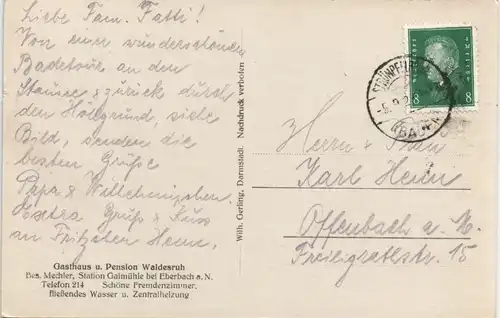 Liebe Fam. Fatti!
Von einer wunderschönen
Badetour an den
& zurück durch
den Höllgrund, siehe
Bild, senden die
besten Grüße
Papa & Willehminchen.
Extra Gruß & Kuss
an Fritzchen Heim.
Gasthaus u. Pension Waldesruh
Bes. Mechler, Station Gaimühle bei Eberbach a. N.
Telefon 214 Schöne Fremdenzimmer.
fließendes Wasser u. Zentralheizung
Wilh. Gerling, Darmstadt. Nachdruck verboten
8 8
(BADEN)
Herrn & Frau
Karl Heim
Offenbach a. M.
Freiligratstr. 15